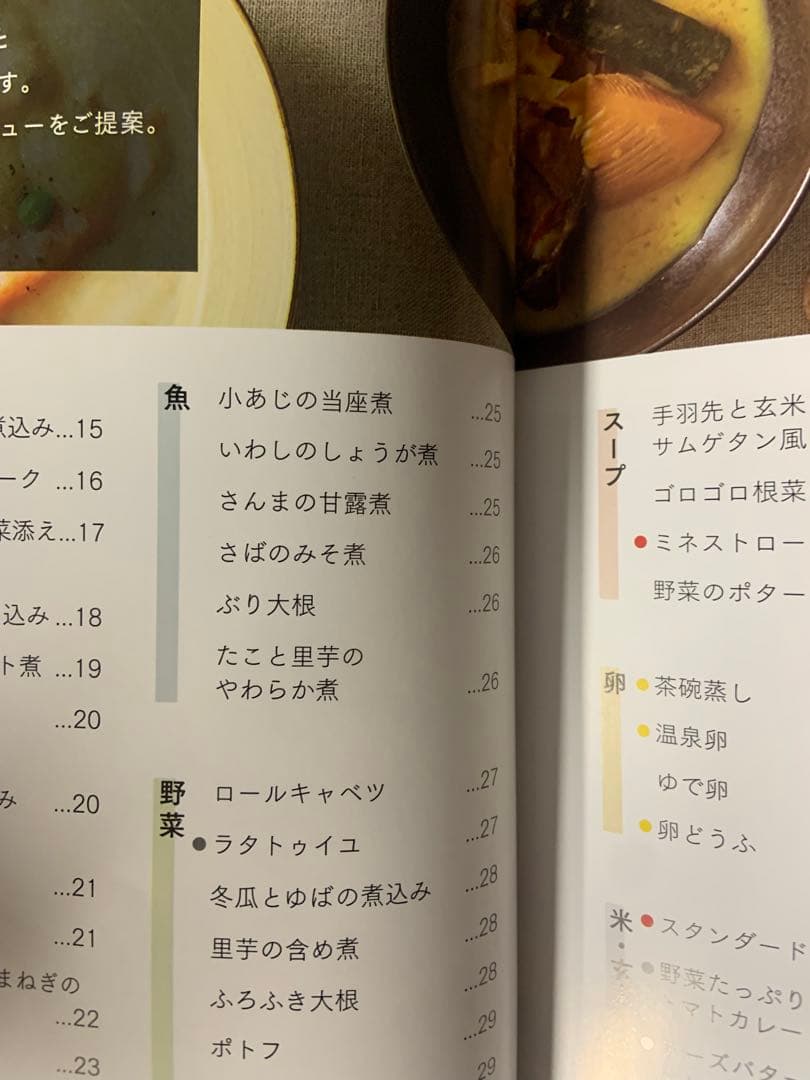 と
す。
ューをご提案。
煮込み...15
ーク ...16
菜添え...17
込み...18
ト煮 ...19
...20
み ...20
...21
...21
まねぎの
...22
...23
魚
小あじの当座煮 ...25
いわしのしょうが煮 ...25
さんまの甘露煮 ...25
さばのみそ煮 ...26
ぶり大根 ...26
たこと里芋の
やわらか煮 ...26
野菜
ロールキャベツ ...27
●ラタトゥイユ ...27
冬瓜とゆばの煮込み ...28
里芋の含め煮 ...28
ふろふき大根 ...28
ポトフ ...29
29
スープ
手羽先と玄米
サムゲタン風
ゴロゴロ根菜
●ミネストロー
野菜のポター
卵
●茶碗蒸し
●温泉卵
ゆで卵
●卵どうふ
米・玄
●スタンダード
●野菜たっぷり
トマトカレー
ーズバター